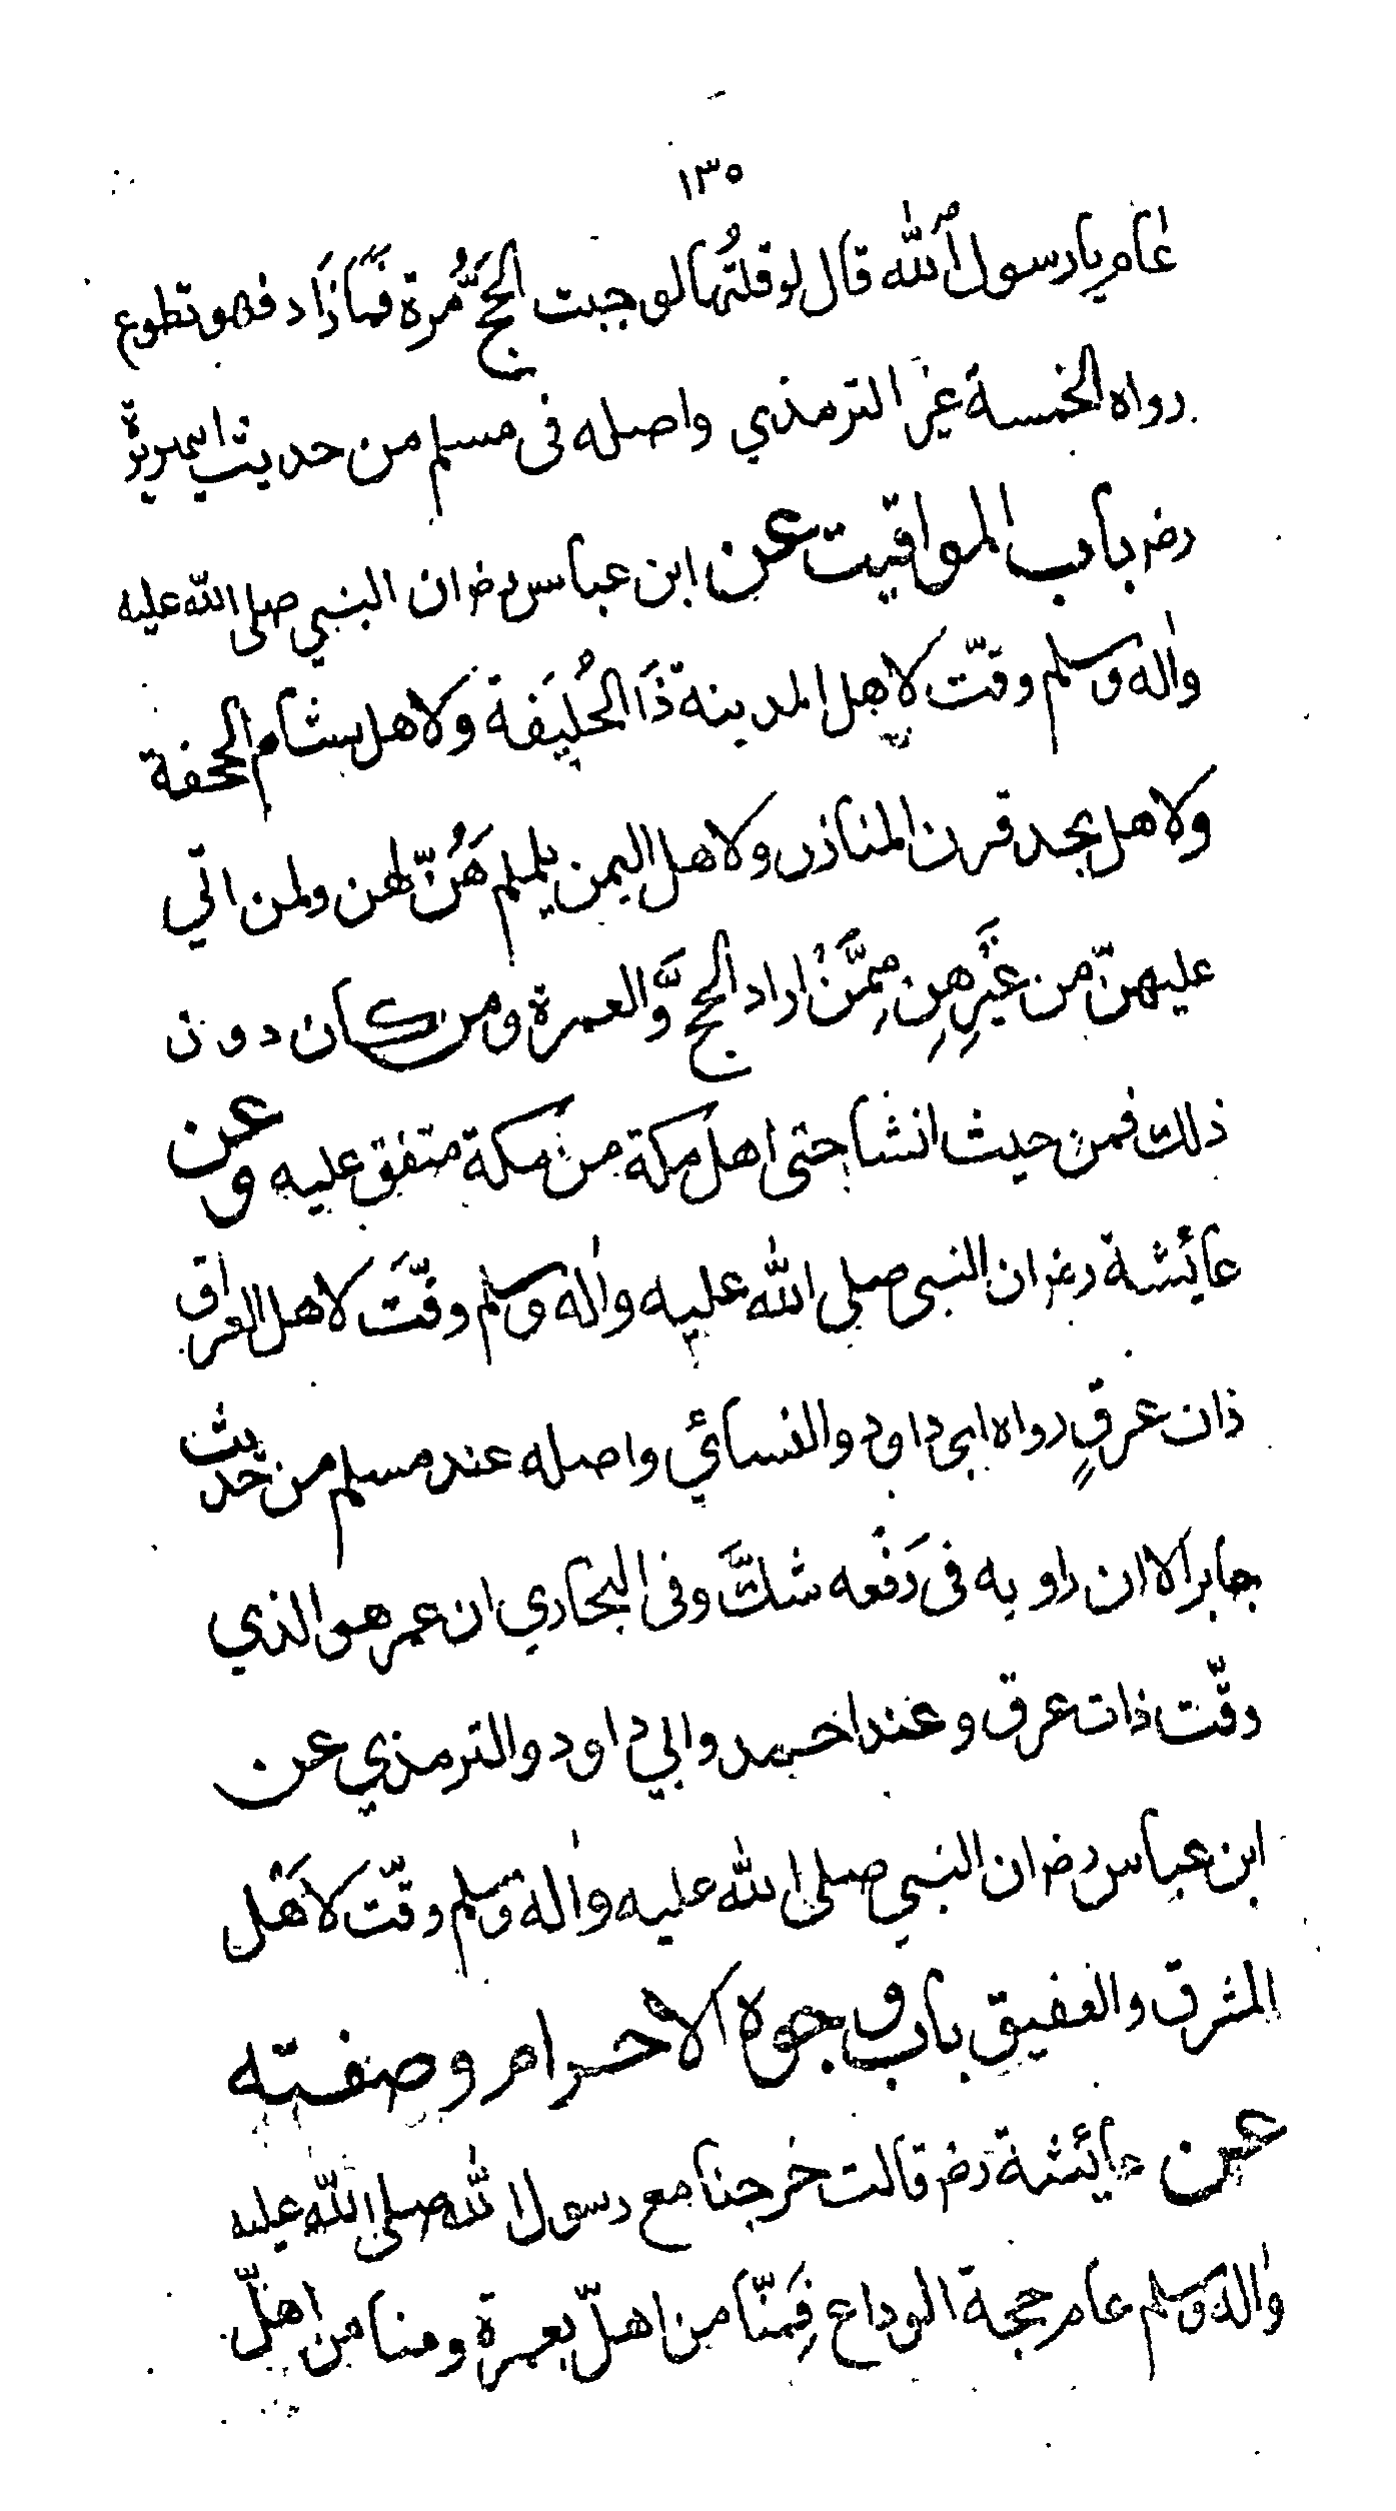 ١٣٥
عام يا رسول الله قال لو قلتُها لوجبت الحجّ مُرة فمَا زَاد فهو تطوع
رواه الخمسة غيرَ الترمذي واصله فى مسلم من حديث ابيهريرة
رضـ باب المواقيت عن ابن عباس رضـ ان النبي صلى الله عليه
واٰله وسلم وقّت لاهل المدينة ذَا الحُليَفة وَلاهل شام الجحفة
ولاهل نجد قرن المنازل ولاهل اليمن يلملم هُنّ لهن ولمن اتي
عليهنّ من غَيرِهِنِ مِمَّنْ اراد الحج وَّالعمرة ومن كان دون
ذلك فمن حيث انشا حتى اهل مكة من مكة متفق عليه وعن
عائشة رضـ ان النبى صلى الله عليه واٰله وسلم وقّتَ لاهل العراق
ذات عرقٍ رواه ابى داود والنسائي واصله عند مسلم من حديث
جابر الا ان راويه فى رَفْعه شكَّ وفى البخاري ان عمر هو الذي
وقّت ذات عرق وعند احمد وابي داود والترمذي عن
ابن عباس رضـ ان النبي صلى الله عليه واٰله وسلم وقّتَ لاَهْل
المشرق والعقيق باب وجوه الاحرام وصفته
عن عائشة رضـ قالت خرجنا مع رسول الله صلى الله عليه
واٰله وسلم عام حجة الوداع فَمِنّا من اهلّ بعمرة ومنا من اهلّ